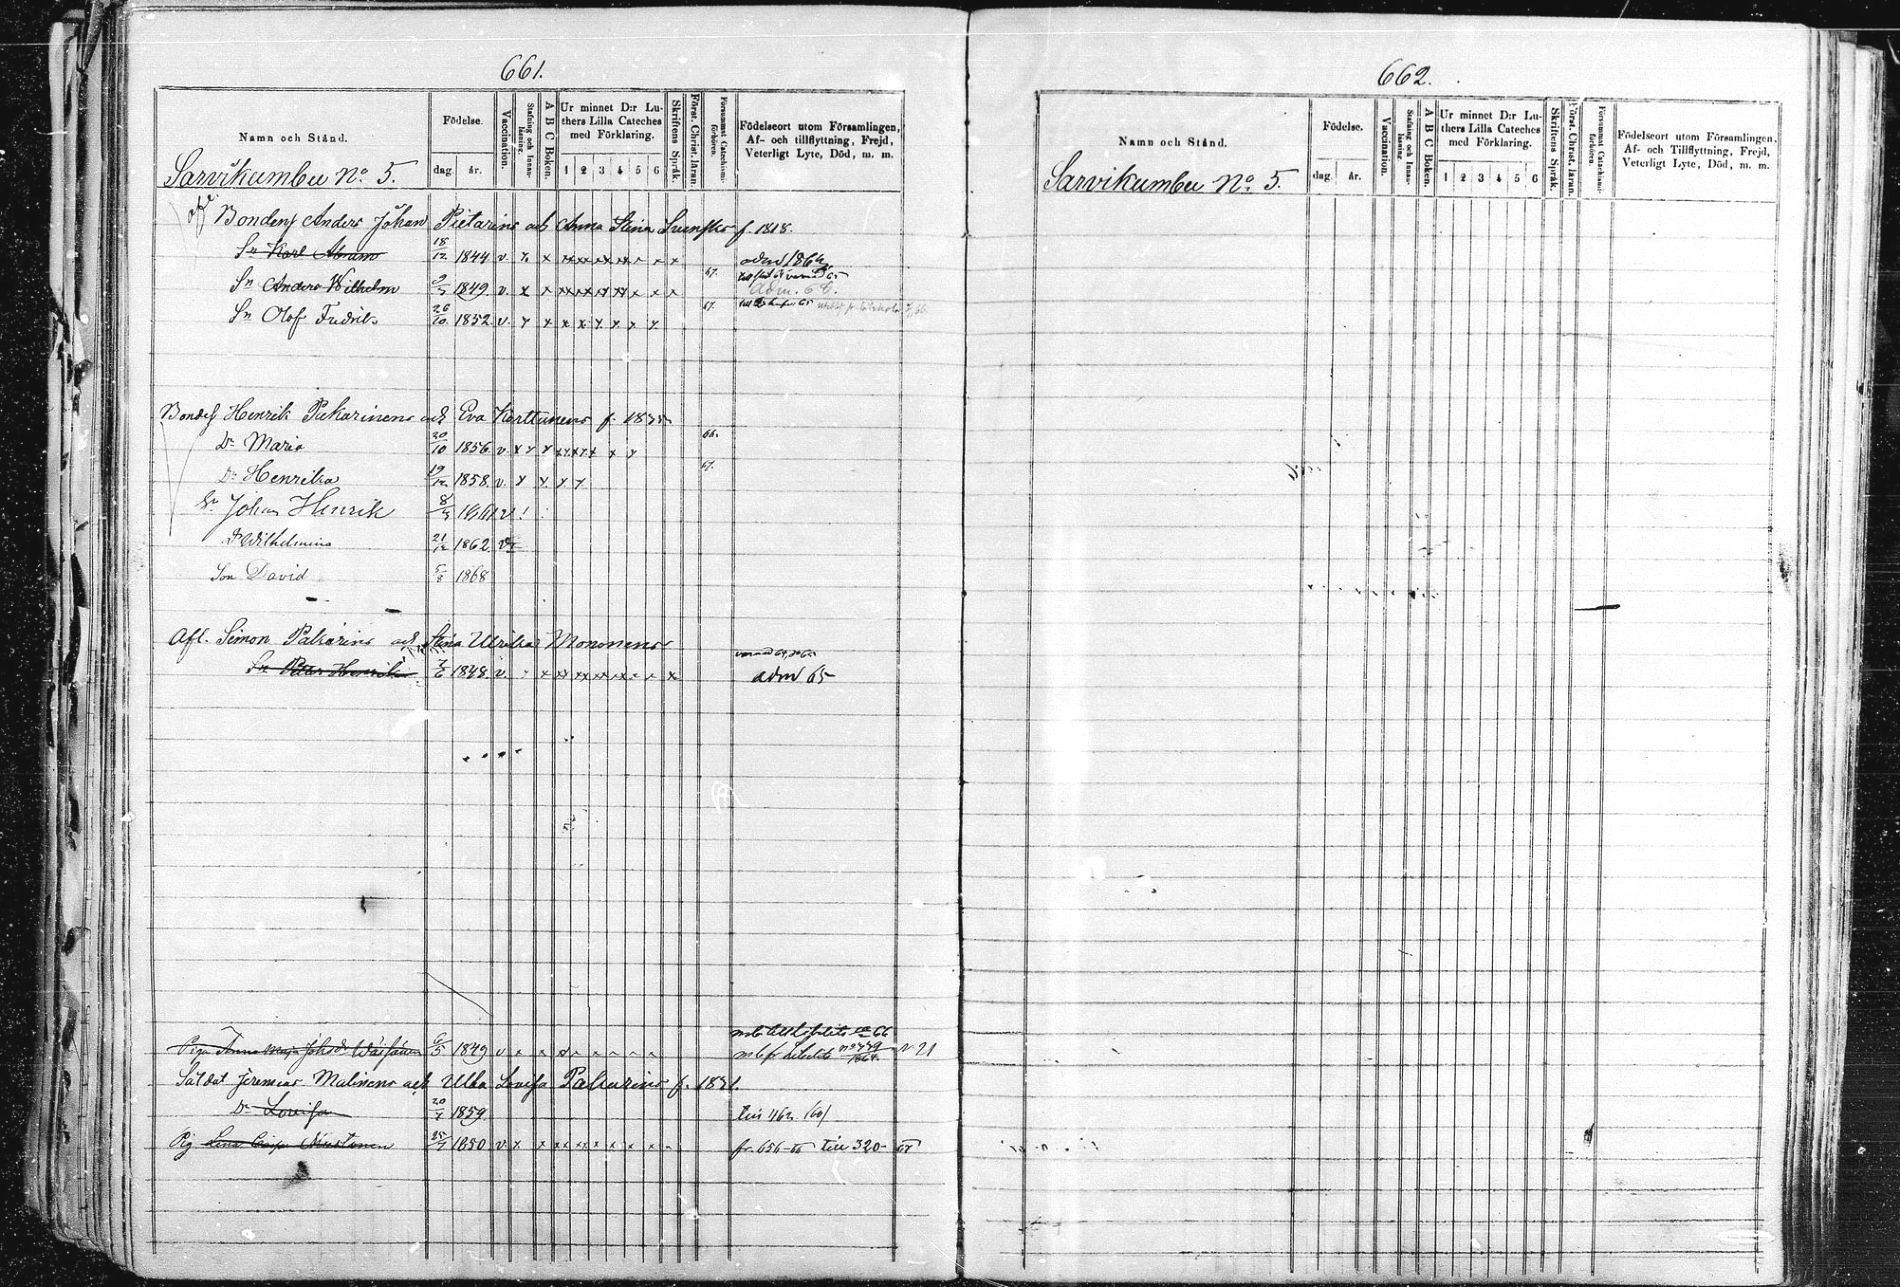 661.
Namn och Stånd.
Födelse.
dag. år.
Vaccination.
Stafning och Innanläsning.
A B C Boken.
Ur minnet D:r Luthers Lilla Cateches med Förklaring.
1 2 3 4 5 6
Skriftens Språk.
Först. Christ. läran.
Försummat Catechismiförhören.
Födelseort utom Församlingen, Af- och tillflyttning, Frejd, Veterligt Lyte, Död, m. m.
Sarvikumbu No. 5.
Bonden Anders Johan Pietarins och Anna Stina f. 1818.
Sn Karl Abram 18/12 1844 v. x x x x x x x x x
Sn Anders Wilhelm 9/3 1849 v. x x x x x x x x x 67. adm. 6
Sn Olof Fredrik 26/10 1852 v. x x x x x x x x 67.
Bond Henrik Pakarinens och Eva Karttunens f. 18
Dr Maria 20/10 1856 v. x x x x x x x x x 66.
Dr Henrika 19/12 1858 v. x x x x 67.
Sn Johan Henrik 8/3 1861 v!
Dr Wilhelmina 21/12 1862 v
Son David 5/8 1868
Afl. Simon Pakarins och Stina Ulrika Mononens
Sn Petter Henrik 7/6 1848 v. x x x x x x x x adm 65
Piga Anna Maja Johsdr 6/5 1849 v 1864. v. 21
Saldat Jeremias Malinens och Ulla Lovisa Pakarins f. 1831.
Dr Lovisa 20/7 1859 till 1162
Pig Lena 25/7 1850 v. x x x x x x x x fr. 656-66 till 320-67
662.
Namn och Stånd.
Födelse.
dag. år.
Vaccination.
Stafning och Innanläsning.
A B C Boken.
Ur minnet D:r Luthers Lilla Cateches med Förklaring.
1 2 3 4 5 6
Skriftens Språk.
Först. Christ. läran.
Försummat Catechismiförhören.
Födelseort utom Församlingen, Af- och Tillflyttning, Frejd, Veterligt Lyte, Död, m. m.
Sarvikumbu No. 5.